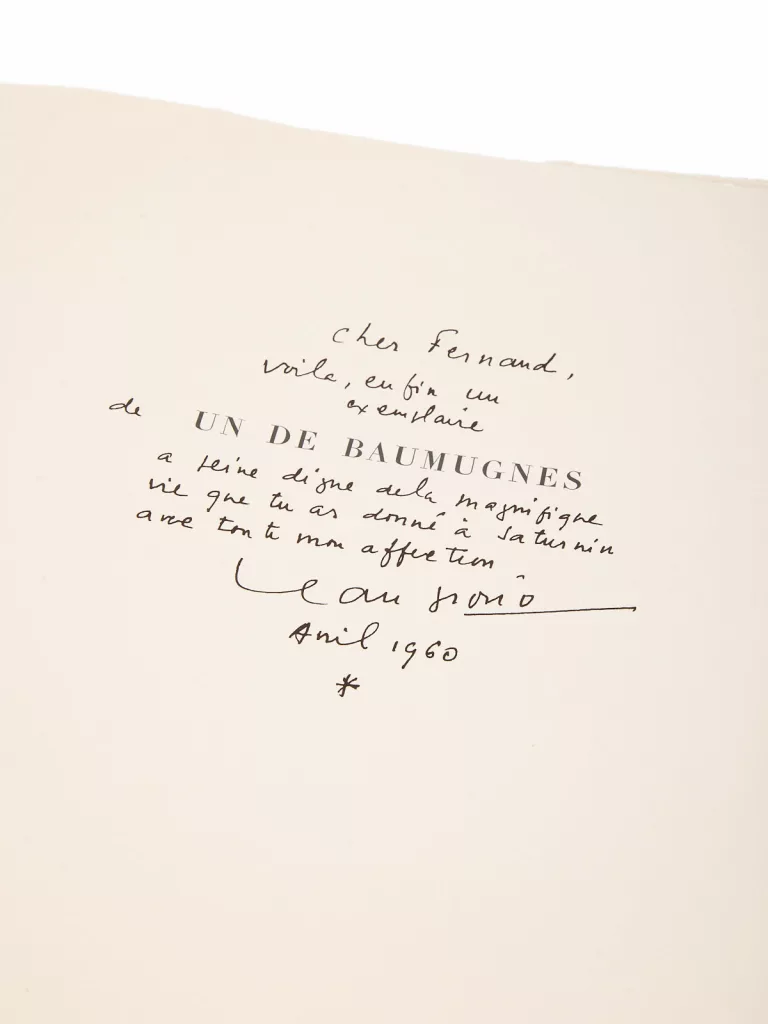 cher Fernand,
voila, enfin un
exemplaire
de UN DE BAUMUGNES
a peine digne dela magnifique
vie que tu as donné à Saturnin
avec toute mon affection
Jean Giono
Avril 1960
*